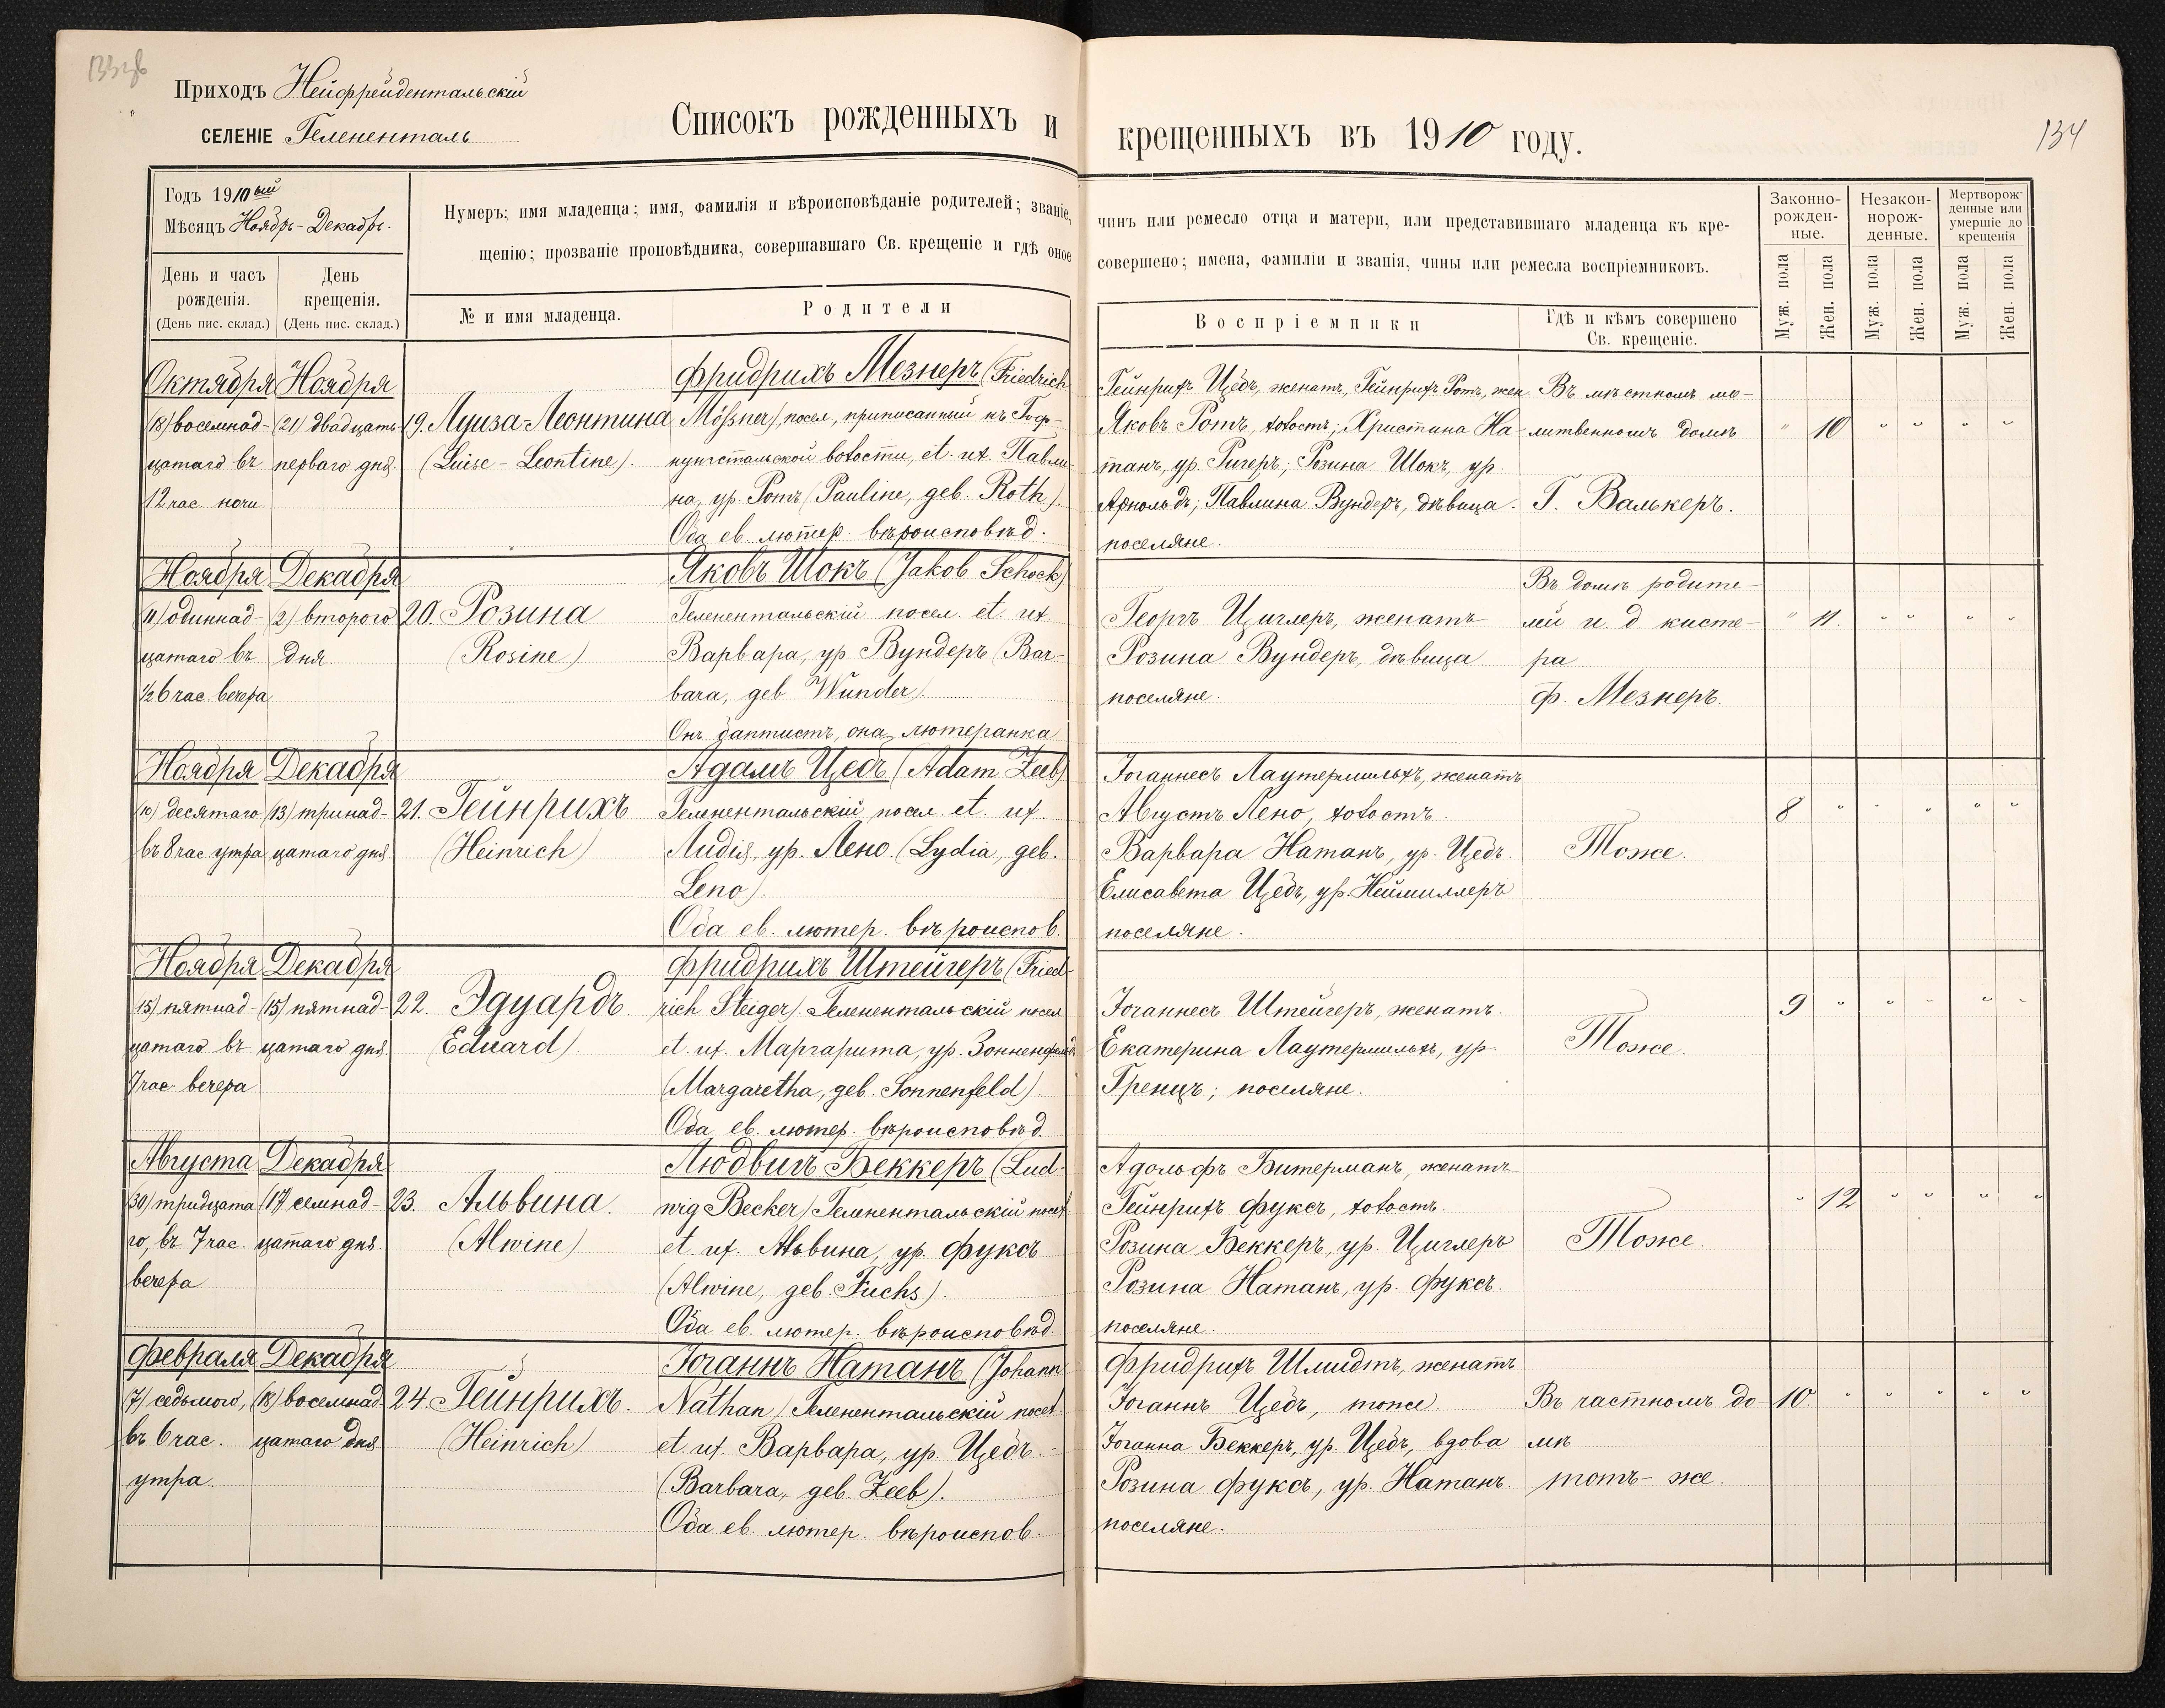 133об
134
Приходъ Нейфрейдентальскій
СЕЛЕНІЕ Гелененталь
Списокъ рожденныхъ и крещенныхъ въ 1910 году.
Годъ 1910ый
Мѣсяцъ Ноябрь-Декабрь.
Нумеръ; имя младенца; имя, фамилія и вѣроисповѣданіе родителей; званіе, чинъ или ремесло отца и матери, или представившаго младенца къ кре-
щенію; прозваніе проповѣдника, совершавшаго Св. крещеніе и гдѣ оное совершено; имена, фамиліи и званія, чины или ремесла воспріемниковъ.
Законно-
рожден-
ные.
Незакон-
норож-
денные.
Мертворож-
денные или
умершіе до
крещенія
День и часъ
рожденія.
(День пис. склад.)
День
крещенія.
(День пис. склад.)
№ и имя младенца.
Родители
Воспріемники
Гдѣ и кѣмъ совершено
Св. крещеніе.
Муж. пола
Жен. пола
Муж. пола
Жен. пола
Муж. пола
Жен. пола
Октября
(18) восемнад-
цатаго въ
12 час. ночи
Ноября
(21) двадцать
перваго дня.
19. Луиза-Леонтина
(Luise-Leontine).
Фридрихъ Мезнеръ (Friedrich
Mößner), посел., приписанный къ Гоф-
нунгстальской волости, et. ux. Павли-
на, ур. Ротъ (Pauline, geb. Roth).
Оба ев. лютер. вѣроисповѣд.
Гейнрихъ Цебъ, женатъ, Гейнрихъ Ротъ, жен.
Яковъ Ротъ, холостъ; Христина На-
танъ, ур. Ригеръ; Розина Шокъ, ур.
Арнольдъ; Павлина Вундеръ, дѣвица.
поселяне.
Въ мѣстномъ мо-
литвенномъ домѣ
Г. Валькеръ.
" 10 " " " "
Ноября
(11) одиннад-
цатаго въ
½6 час. вечера
Декабря
(2) второго
дня.
20. Розина
(Rosine)
Яковъ Шокъ (Jakob Schock)
Гелентальскій посел. et. ux.
Варвара, ур. Вундеръ (Bar-
bara, geb. Wunder).
Онъ баптистъ, она лютеранка
Георгъ Циглеръ, женатъ
Розина Вундеръ, дѣвица
поселяне.
Въ домѣ родите-
лей и. д. кисте-
ра
Ф. Мезнеръ.
" 11. " " " "
Ноября
(10) десятаго
въ 8 час. утра
Декабря
(13) тринад-
цатаго дня.
21. Гейнрихъ
(Heinrich)
Адамъ Цебъ (Adam Zeeb)
Геленентальскій посел. et. ux.
Лидія, ур. Лено. (Lydia, geb.
Leno).
Оба ев. лютер. вѣроиспов.
Іоганнесъ Лаутермильхъ, женатъ
Августъ Лено, холостъ.
Варвара Натанъ, ур. Цебъ.
Елисавета Цебъ, ур. Неймиллеръ
поселяне.
Тоже.
8 " " " " "
Ноября
(15) пятнад-
цатаго въ
7 час. вечера
Декабря
(15) пятнад-
цатаго дня.
22. Эдуардъ
(Eduard)
Фридрихъ Штейгеръ (Fried-
rich Steiger). Геленентальскій посел.
et. ux. Маргарита, ур. Зонненфельдъ
(Margaretha, geb. Sonnenfeld).
Оба ев. лютер. вѣроисповѣд.
Іоганнесъ Штейгеръ, женатъ.
Екатерина Лаутермильхъ, ур.
Гренцъ; поселяне.
Тоже.
9 " " " " "
Августа
(30) тридцата
го, въ 7 час.
вечера
Декабря
(17) семнад-
цатаго дня.
23. Альвина.
(Alwine)
Людвигъ Беккеръ (Lud-
wig Becker) Геленентальскій посел.
et. ux. Альвина, ур. Фуксъ
(Alwine, geb. Fuchs).
Оба ев. лютер. вѣроисповѣд.
Адольфъ Битерманъ, женатъ
Гейнрихъ Фуксъ, холостъ.
Розина Беккеръ, ур. Циглеръ
Розина Натанъ, ур. Фуксъ.
поселяне.
Тоже.
" 12 " " " "
Февраля
(7) седьмого,
въ 6 час.
утра.
Декабря
(18) восемнад-
цатаго дня
24. Гейнрихъ.
(Heinrich)
Іоганнъ Натанъ (Johann
Nathan) Геленентальскій посел.
et. ux. Варвара, ур. Цебъ
(Barbara, geb. Zeeb).
Оба ев. лютер. вѣроиспов.
Фридрихъ Шмидтъ, женатъ
Іоганнъ Цебъ, тоже
Іоганна Беккеръ, ур. Цебъ, вдова
Розина Фуксъ, ур. Натанъ.
поселяне.
Въ частномъ до
мѣ
тотъ-же.
10. " " " " "